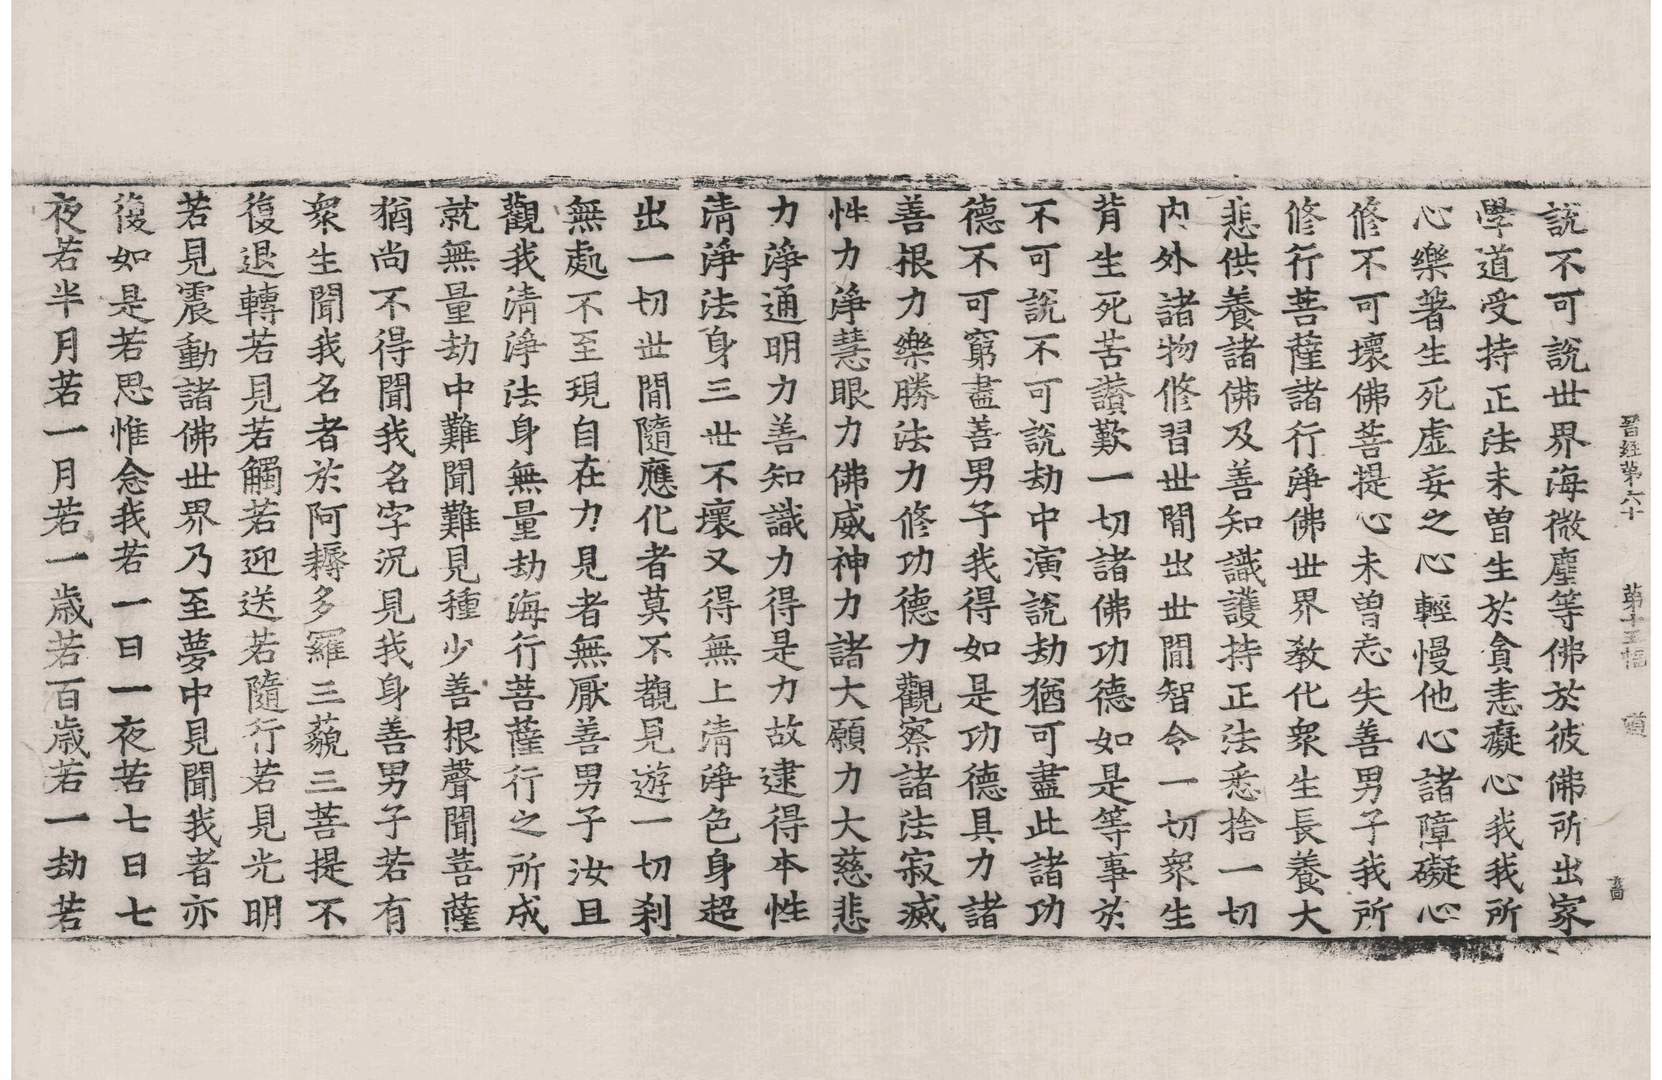 晉經第六十　第十五幅　道
啚
說不可說世界海微塵等佛於彼佛所出家
學道受持正法未曽生於貪恚癡心我我所
心樂著生死虛妄之心輕慢他心諸障礙心
修不可壞佛菩提心未曽忘失善男子我所
修行菩薩諸行淨佛世界敎化衆生長養大
悲供養諸佛及善知識護持正法悉捨一切
內外諸物修習世閒出世閒智令一切衆生
背生死苦讃歎一切諸佛功德如是等事於
不可說不可說劫中演說劫猶可盡此諸功
德不可窮盡善男子我得如是功德具力諸
善根力樂勝法力修功德力觀察諸法寂滅
性力淨慧眼力佛威神力諸大願力大慈悲
力淨通明力善知識力得是力故逮得本性
清淨法身三世不壞又得無上清淨色身超
出一切世閒隨應化者莫不覩見遊一切刹
無處不至現自在力見者無厭善男子汝且
觀我清淨法身無量劫海行菩薩行之所成
就無量劫中難聞難見種少善根聲聞菩薩
猶尚不得聞我名字況見我身善男子若有
衆生聞我名者於阿耨多羅三藐三菩提不
復退轉若見若觸若迎送若隨行若見光明
若見震動諸佛世界乃至夢中見聞我者亦
復如是若思惟念我若一日一夜若七日七
夜若半月若一月若一歲若百歲若一劫若